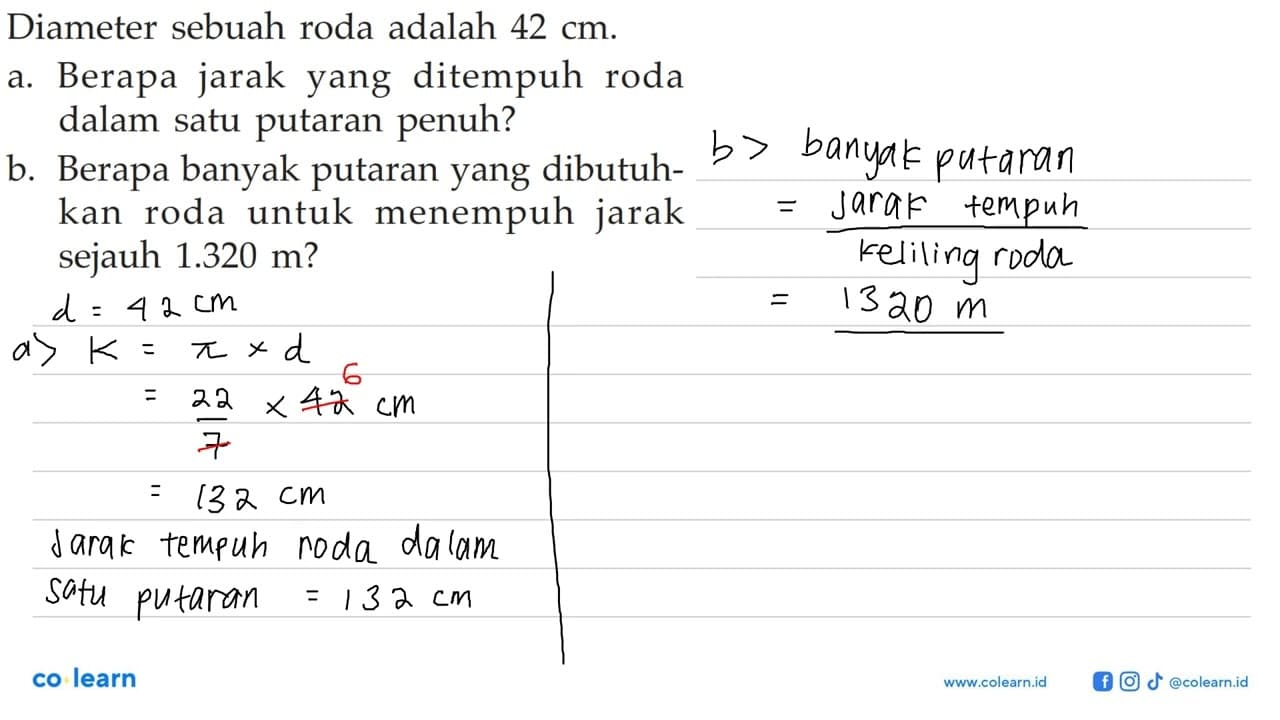 Diameter sebuah roda adalah 42 cm.
a. Berapa jarak yang ditempuh roda
dalam satu putaran penuh?
b. Berapa banyak putaran yang dibutuh-
kan roda untuk menempuh jarak
sejauh 1.320 m?
d = 42 cm
a> K = π × d
6
= 22 × 42 cm
7
= 132 cm
Jarak tempuh roda dalam
satu putaran = 132 cm
b> banyak putaran
= Jarak tempuh
keliling roda
= 1320 m
co learn
www.colearn.id
@colearn.id